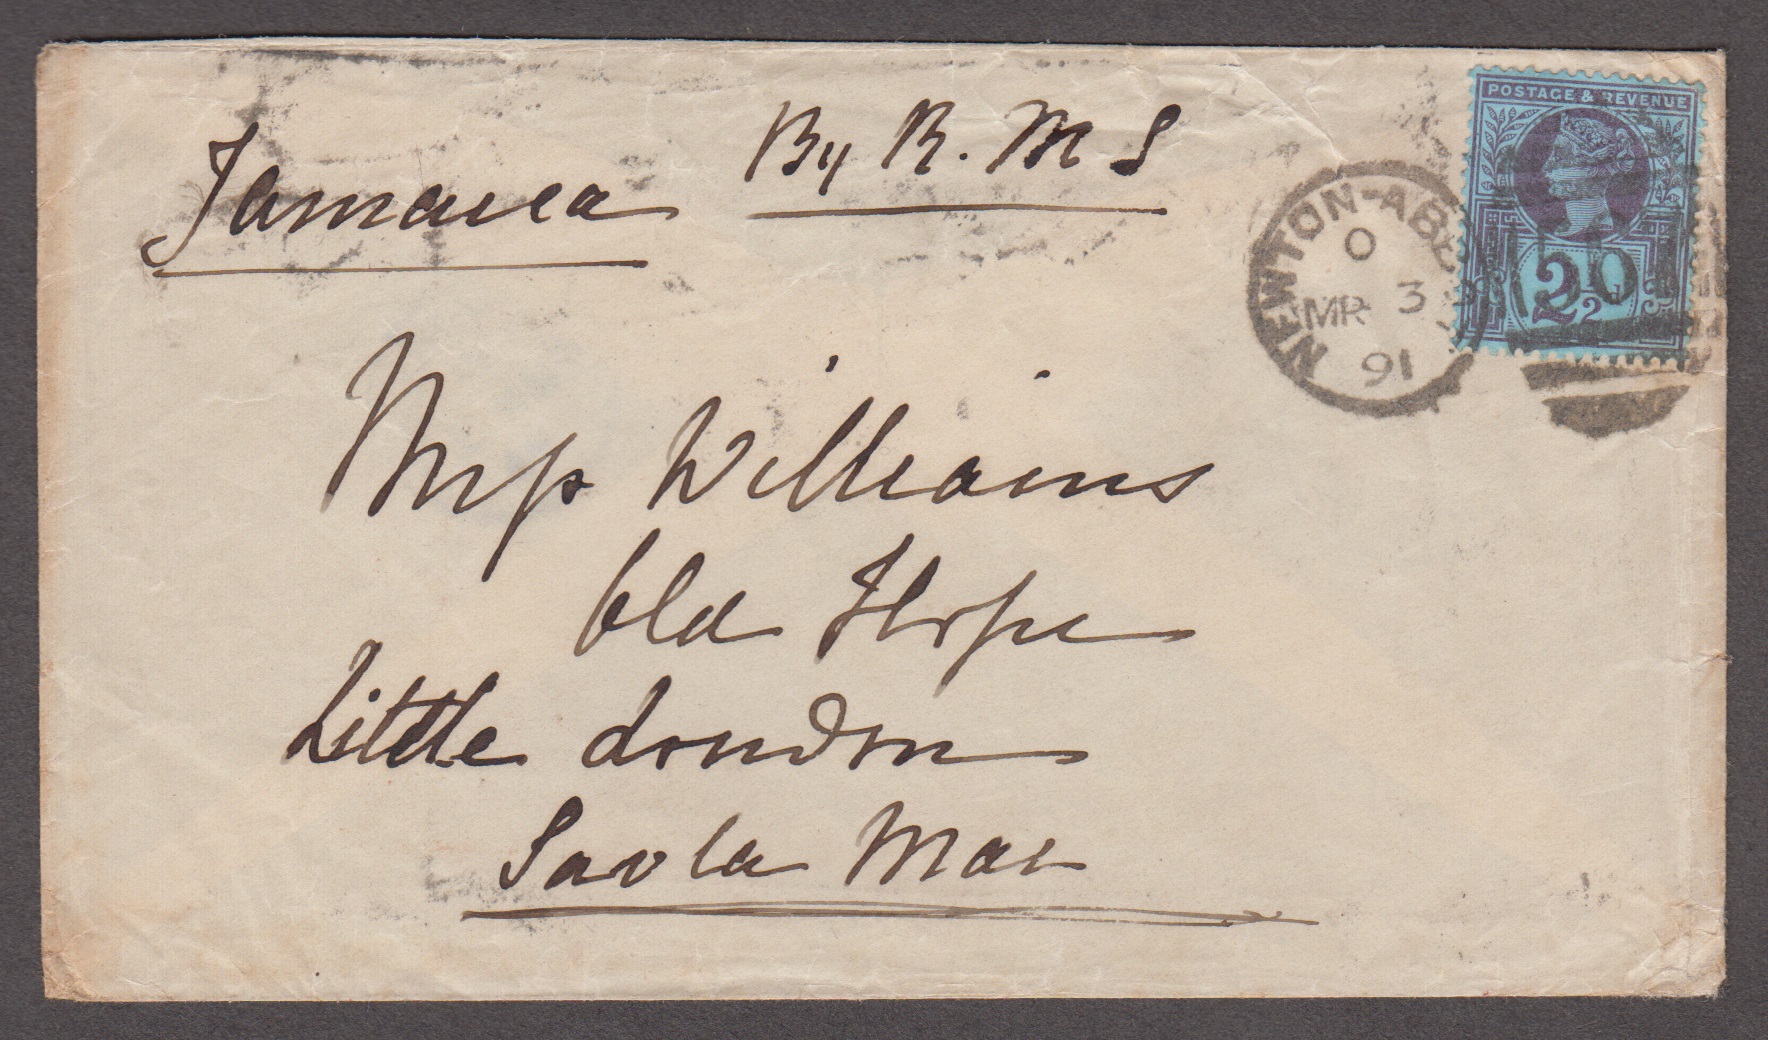 Jamaica By R. M S
POSTAGE & REVENUE
NEWTON-ABB
O
MR 3
91
2½d
Mrs Williams
Old Hope
Little London
Savla Mar